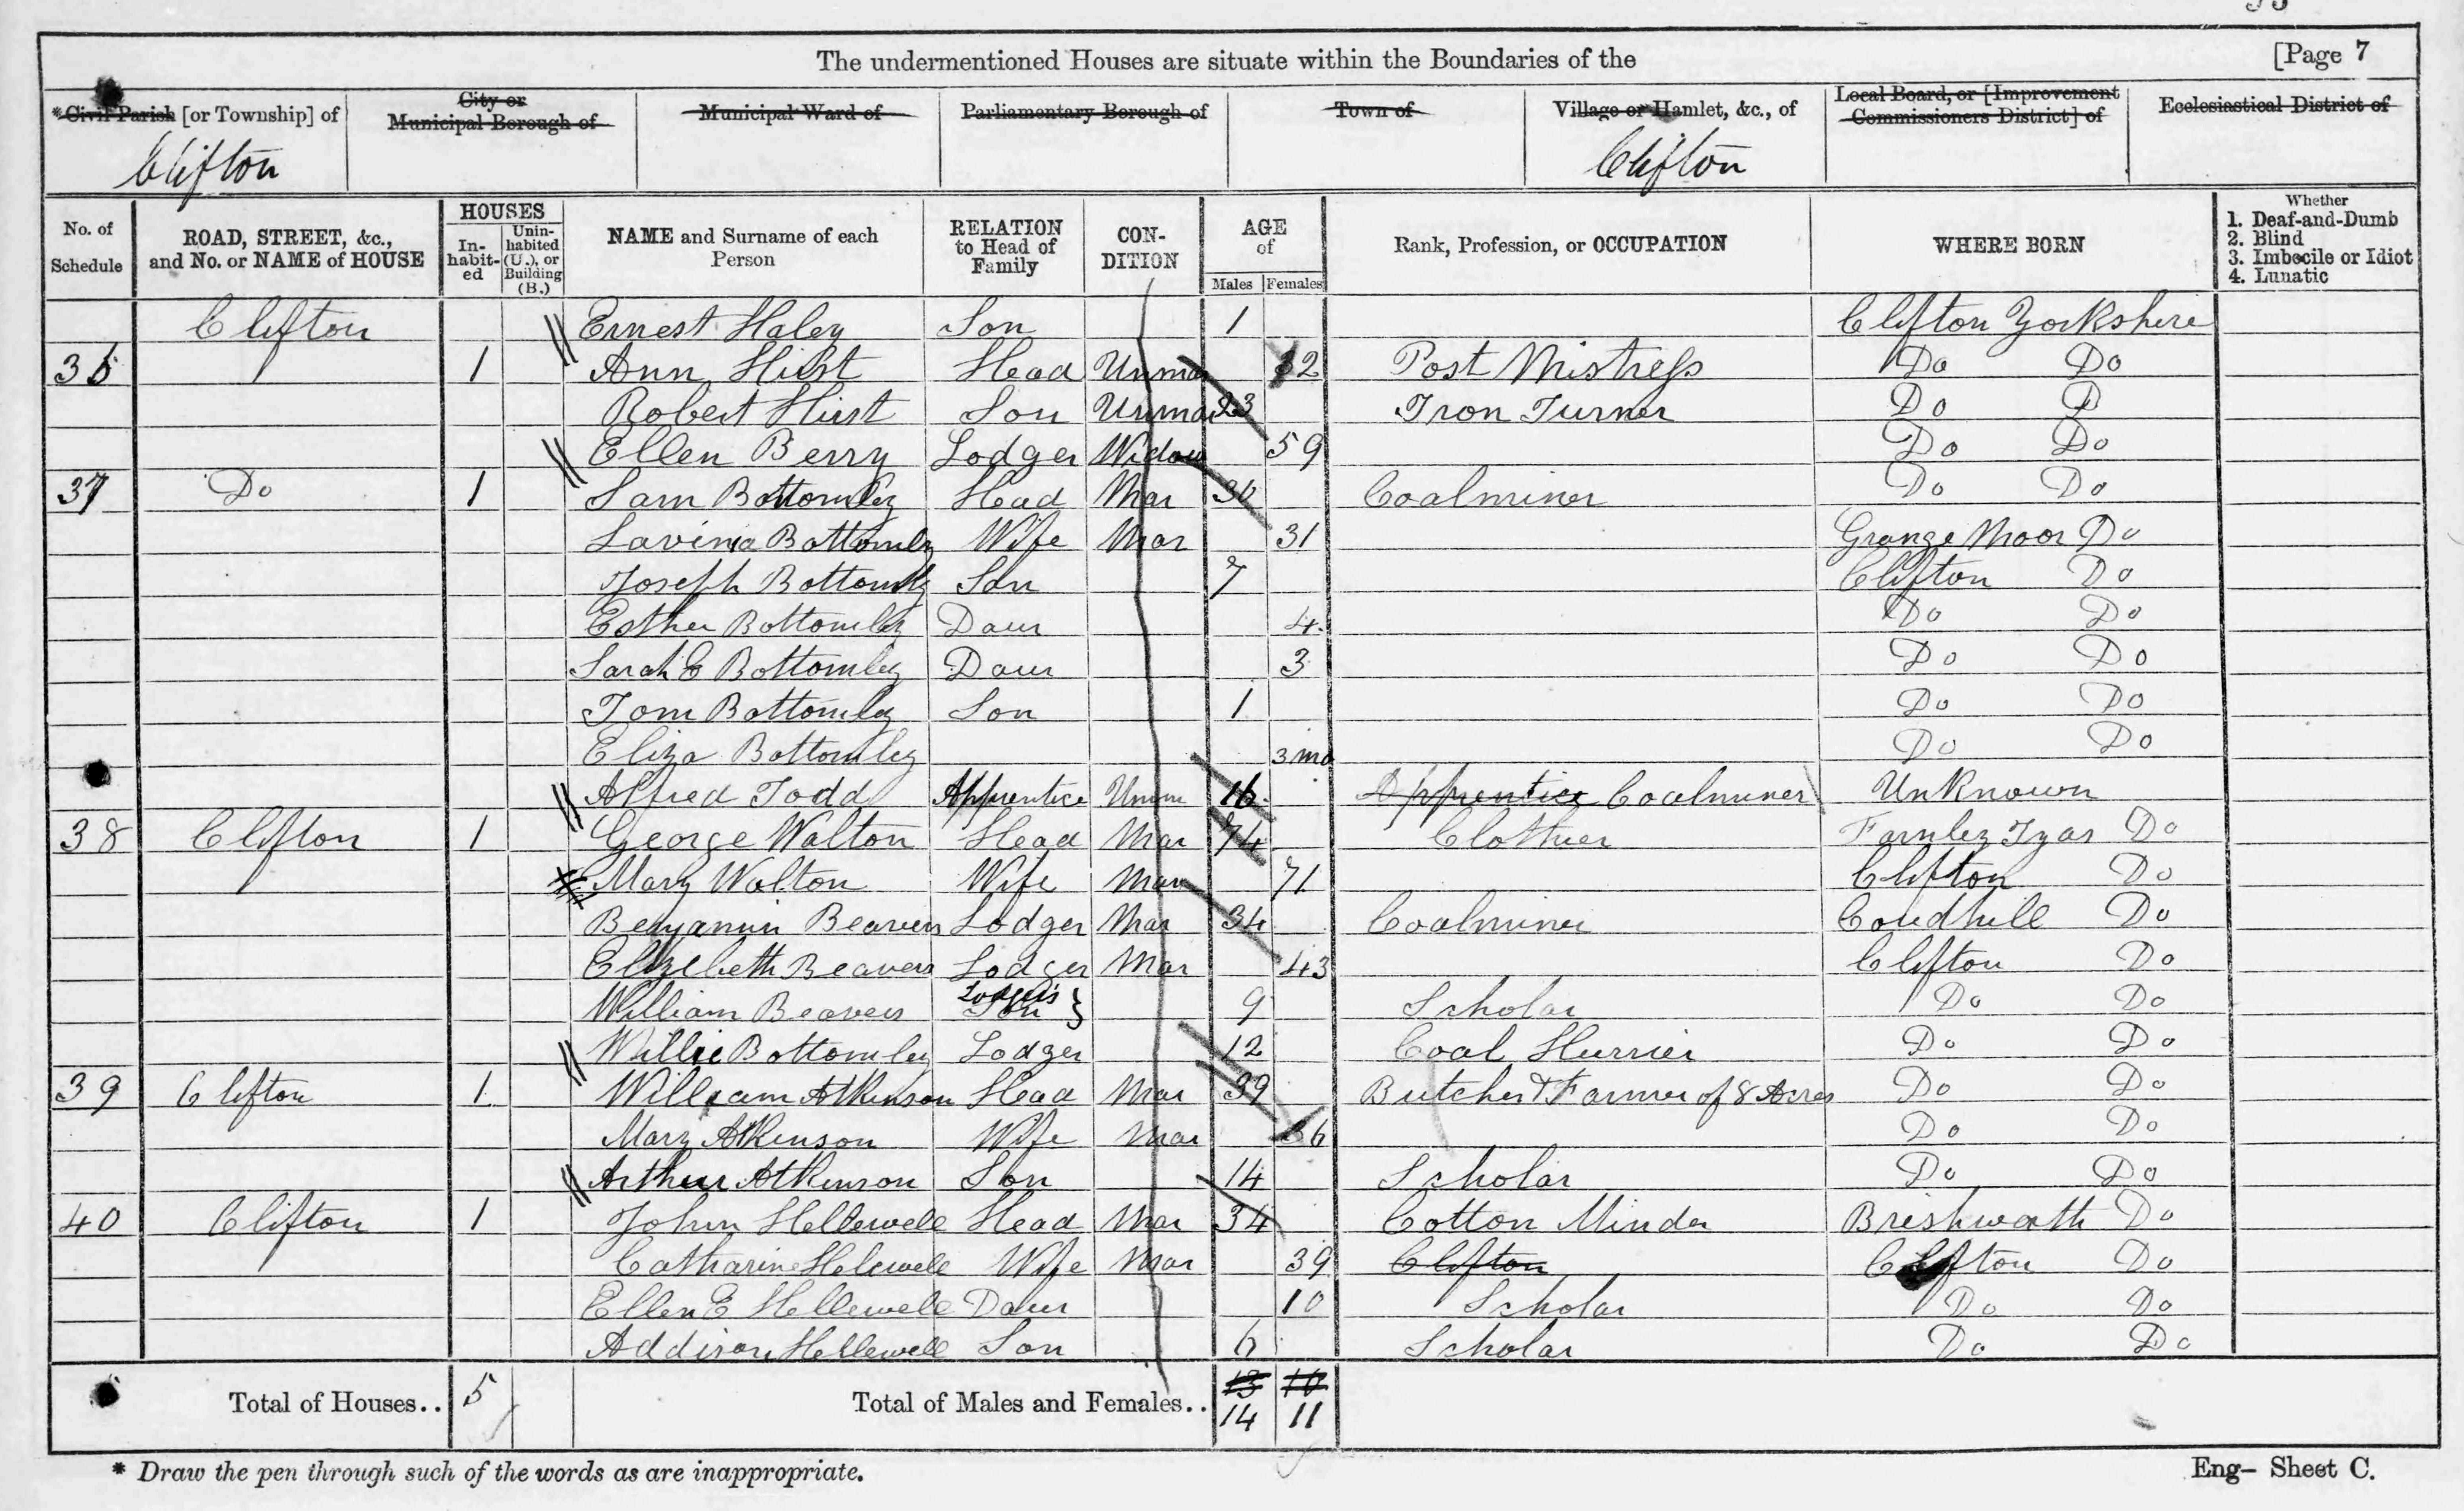 The undermentioned Houses are situate within the Boundaries of the [Page 7
*Civil Parish [or Township] of City or Municipal Borough of Municipal Ward of Parliamentary Borough of Town of Village or Hamlet, &c., of Local Board, or [Improvement Commissioners District] of Ecclesiastical District of
Clifton Clifton
No. of Schedule ROAD, STREET, &c., and No. or NAME of HOUSE HOUSES Inhabited Uninhabited (U.), or Building (B.) NAME and Surname of each Person RELATION to Head of Family CONDITION AGE of Males Females Rank, Profession, or OCCUPATION WHERE BORN Whether 1. Deaf-and-Dumb 2. Blind 3. Imbecile or Idiot 4. Lunatic
Clifton Ernest Haley Son 1 Clifton Yorkshire
36 1 Ann Hirst Head Unmar 2 Post Mistress Do Do
Robert Hirst Son Unmar 23 Iron Turner Do D
Ellen Berry Lodger Widow 59 Do Do
37 Do 1 Sam Bottomley Head Mar 30 Coalminer Do Do
Lavinia Bottomley Wife Mar 31 Grange Moor Do
Joseph Bottomley Son 7 Clifton Do
Esther Bottomley Daur 4 Do Do
Sarah E Bottomley Daur 3 Do Do
Tom Bottomley Son 1 Do Do
Eliza Bottomley 3 mo Do Do
Alfred Todd Apprentice Unm 16 Apprentice Coalminer Unknown
38 Clifton 1 George Walton Head Mar 74 Clothier Farnley Tyas Do
Mary Walton Wife Mar 71 Clifton Do
Benjamin Beavers Lodger Mar 34 Coalminer Do
Elizebeth Beavers Lodger Mar 43 Clifton Do
William Beavers Lodger's Son } 9 Scholar Do Do
Willie Bottomley Lodger 12 Coal Hurrier Do Do
39 Clifton 1 William Atkinson Head Mar 39 Butcher & Farmer of 8 Acres Do Do
Mary Atkinson Wife Mar 36 Do Do
Arthur Atkinson Son 14 Scholar Do Do
40 Clifton 1 John Hellewell Head Mar 34 Cotton Minder Do
Catharine Helewell Wife Mar 39 Clifton Clifton Do
Ellen E Hellewell Daur 10 Scholar Do Do
Addison Hellewell Son 6 Scholar Do Do
Total of Houses.. 5 Total of Males and Females.. 13 10
14 11
* Draw the pen through such of the words as are inappropriate.
Eng- Sheet C.